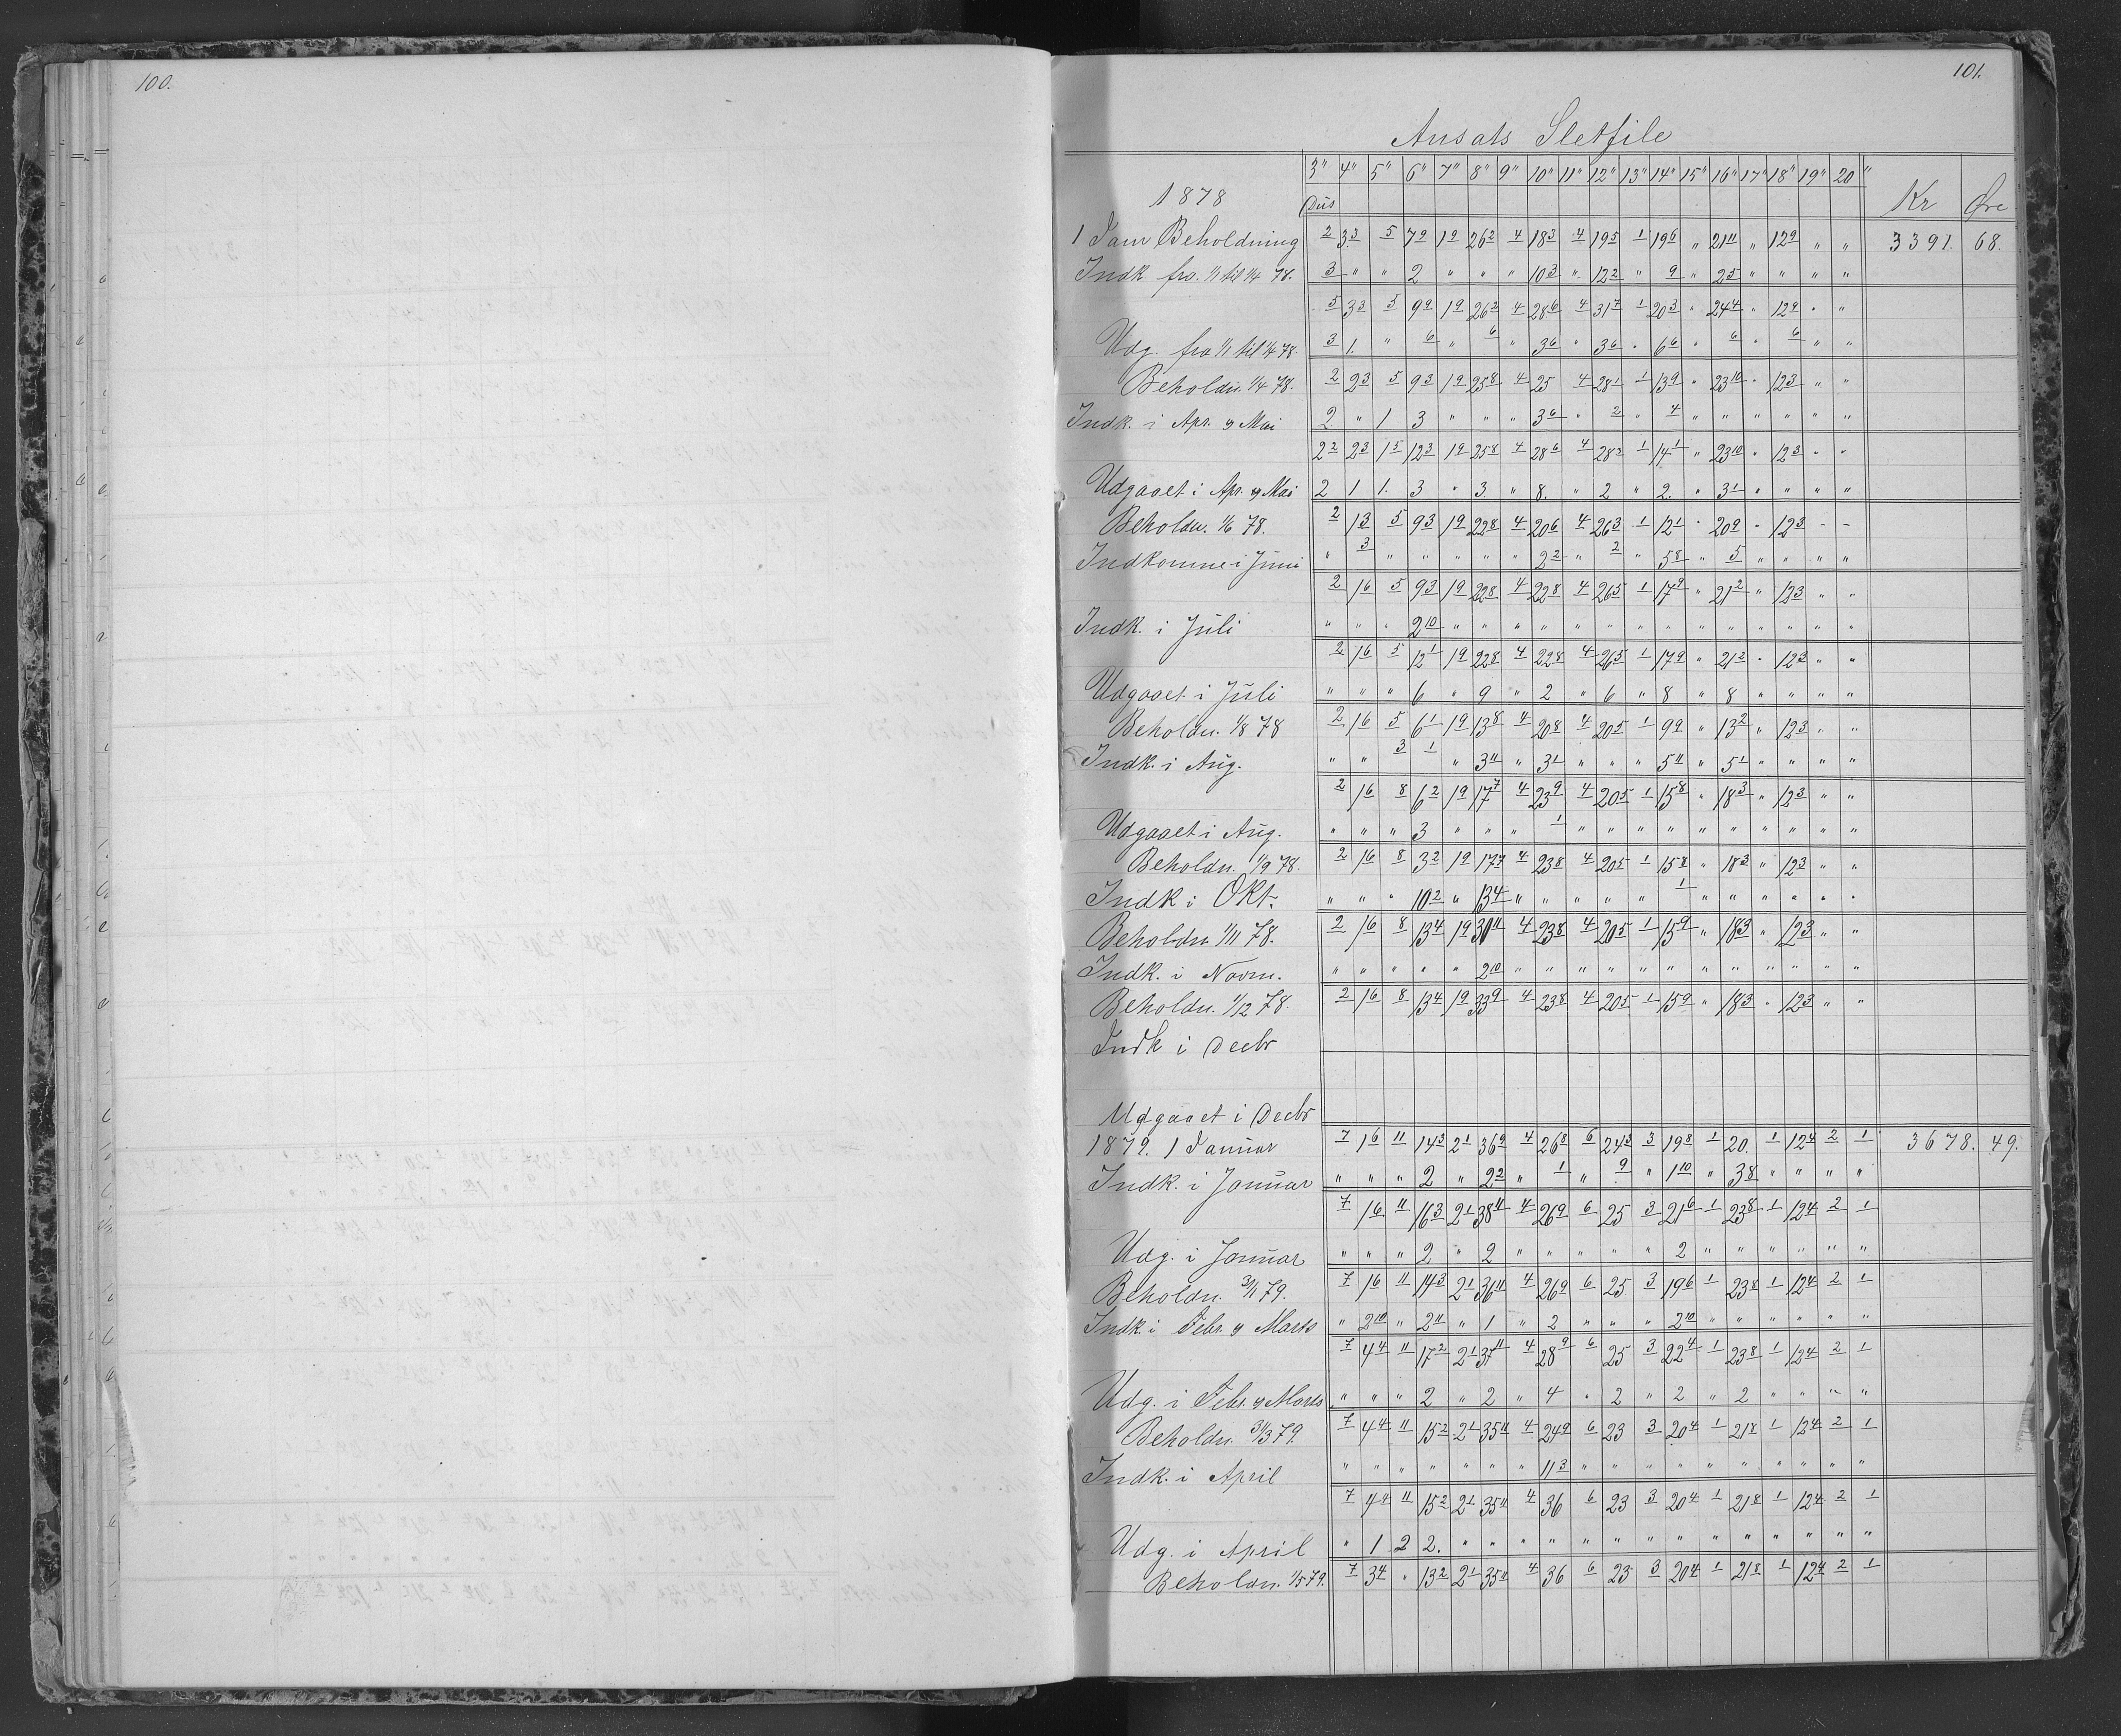 100.
101.
Ansats Sletfile
3" 4" 5" 6" 7" 8" 9" 10" 11" 12" 13" 14" 15" 16" 17" 18" 19" 20"
1878 Dus Kr Øre
1 Janr Beholdning 2 3 3 5 7 9 1 9 26 2 4 18 3 4 19 5 1 19 6 " 21 11 " 12 9 " " 3391. 68.
Indk fra 1/1 til 1/4 78. 3 " " 2 " " " 10 3 " 12 2 " 9 " 2 5 " " " "
5 3 3 5 9 9 1 9 26 2 4 28 6 4 31 7 1 20 3 " 24 4 " 12 9 " "
Udg. fra 1/1 til 1/4 78. 3 1. " 6 " 6 " 3 6 " 3 6 " 6 6 " 6 " 6 " "
Beholdn. 1/4 78. 2 2 3 5 9 3 1 9 25 8 4 25 4 28 1 1 13 9 " 23 10 " 12 3 " "
Indk. i Apr. og Mai 2 " 1 3 " " " 3 6 " 2 " 4 " " " " " "
2 2 2 3 1 5 12 3 1 9 25 8 4 28 6 4 28 3 1 14 1 " 23 10 " 12 3 " "
Udgaaet i Apr. og Mai 2 1 1. 3 " 3. " 8. " 2 " 2. " 3 1 " " " "
Beholdn. 1/6 78. 2 1 3 5 9 3 1 9 22 8 4 20 6 4 26 3 1 12 1 " 20 9 " 12 3 - -
Indkomne i Juni " 3 " " " " " 2 2 " 2 " 5 8 " 5 " " " "
2 1 6 5 9 3 1 9 22 8 4 22 8 4 26 5 1 17 9 " 21 2 " 12 3 " "
Indk. i Juli " " " 2 10 " " " " " " " " " " " " " "
2 1 6 5 12 1 1 9 22 8 4 22 8 4 26 5 1 17 9 " 21 2 " 12 3 " "
Udgaaet i Juli " " " 6 " 9 " 2 " 6 " 8 " 8 " " " "
Beholdn. 1/8 78 2 1 6 5 6 1 1 9 13 8 4 20 8 4 20 5 1 9 9 " 13 2 " 12 3 " "
Indk. i Aug. " " 3 1 " 3 11 " 3 1 " " " 5 11 " 5 1 " " " "
2 1 6 8 6 2 1 9 17 7 4 23 9 4 20 5 1 15 8 " 18 3 " 12 3 " "
Udgaaet i Aug. " " " 3 " " " 1 " " " " " " " " " "
Beholdn. 1/9 78. 2 1 6 8 3 2 1 9 17 7 4 23 8 4 20 5 1 15 8 " 18 3 " 12 3 " "
Indk i Okt. " " " 10 2 " 13 4 " " " " " 1 " " " " " "
Beholdn. 1/11 78. 2 1 6 8 13 4 1 9 30 11 4 23 8 4 20 5 1 15 9 " 18 3 " 12 3 " "
Indk. i Novm. " " " " " 2 10 " " " " " " " " " " " "
Beholdn. 1/12 78. 2 1 6 8 13 4 1 9 33 9 4 23 8 4 20 5 1 15 9 " 18 3 " 12 3 " "
Indk i Decbr
Udgaaet i Decbr
1879. 1 Januar 7 1 6 11 14 3 2 1 36 9 4 26 8 6 24 3 3 19 8 1 20. 1 12 4 2 1 3678. 49.
Indk. i Januar " " " 2 " 2 2 " 1 " 9 " 1 10 " 3 8 " " " "
7 1 6 11 16 3 2 1 38 11 4 26 9 6 25 3 21 6 1 23 8 1 12 4 2 1
Udg. i Januar " " " 2 " 2 " " " " " 2 " " " " " "
Beholdn. 31/1 79. 7 1 6 11 14 3 2 1 36 11 4 26 9 6 25 3 19 6 1 23 8 1 12 4 2 1
Indk. i Febr. og Marts " 2 10 " 2 11 " 1 " 2 " " " 2 10 " " " " " "
7 4 4 11 17 2 2 1 37 11 4 28 9 6 25 3 22 4 1 23 8 1 12 4 2 1
Udg. i Febr. og Marts " " " 2 " 2 " 4 " 2 " 2 " 2 " " " "
Beholdn. 31/3 79. 7 4 4 11 15 2 2 1 35 11 4 24 9 6 23 3 20 4 1 21 8 1 12 4 2 1
Indk. i April " " " " " " " 11 3 " " " " " " " " " "
7 4 4 11 15 2 2 1 35 11 4 36 6 23 3 20 4 1 21 8 1 12 4 2 1
Udg. i April " 1 2 2. " " " " " " " " " " " " " "
Beholdn. 1/5 79. 7 3 4 " 13 2 2 1 35 11 4 36 6 23 3 20 4 1 21 8 1 12 4 2 1